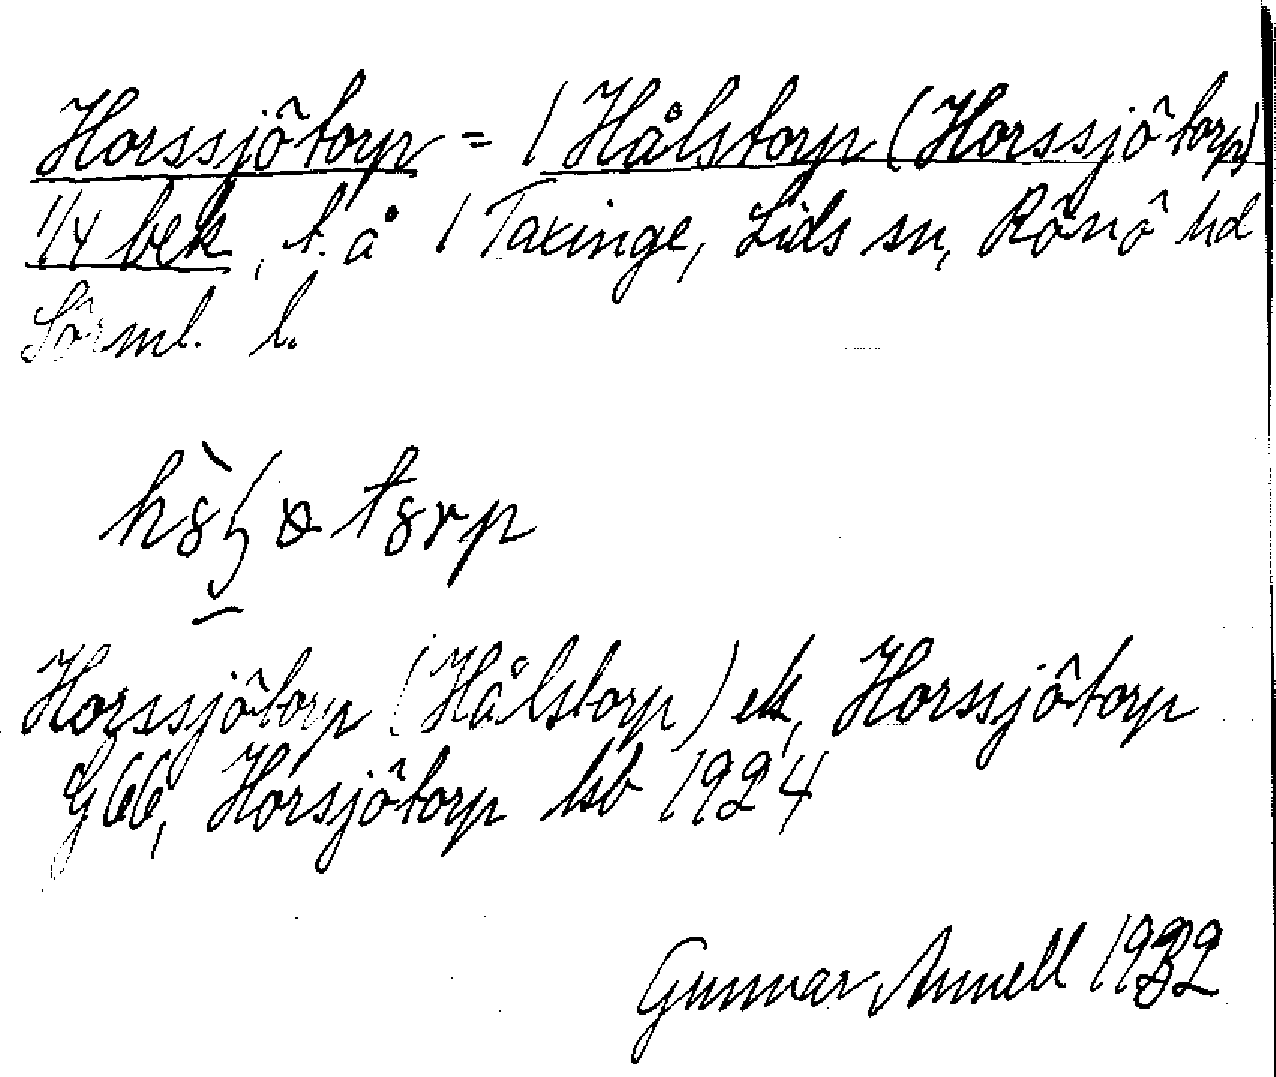 Horssjötorp = 1 Hålstorp (Horssjötorp)
1/4 bek, t. å 1 Taxinge, Lids sn, Rönö hd
Sörml. l.
Horssjötorp (Hålstorp) ek, Horssjötorp
G66, Horsjötorp lsb 1924
Gunnar Annell 1932